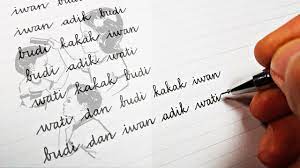 iwan budi
iwan adik budi
budi kakak iwan
budi adik wati
wati kakak budi
wati dan budi kakak iwan
budi dan iwan adik wati